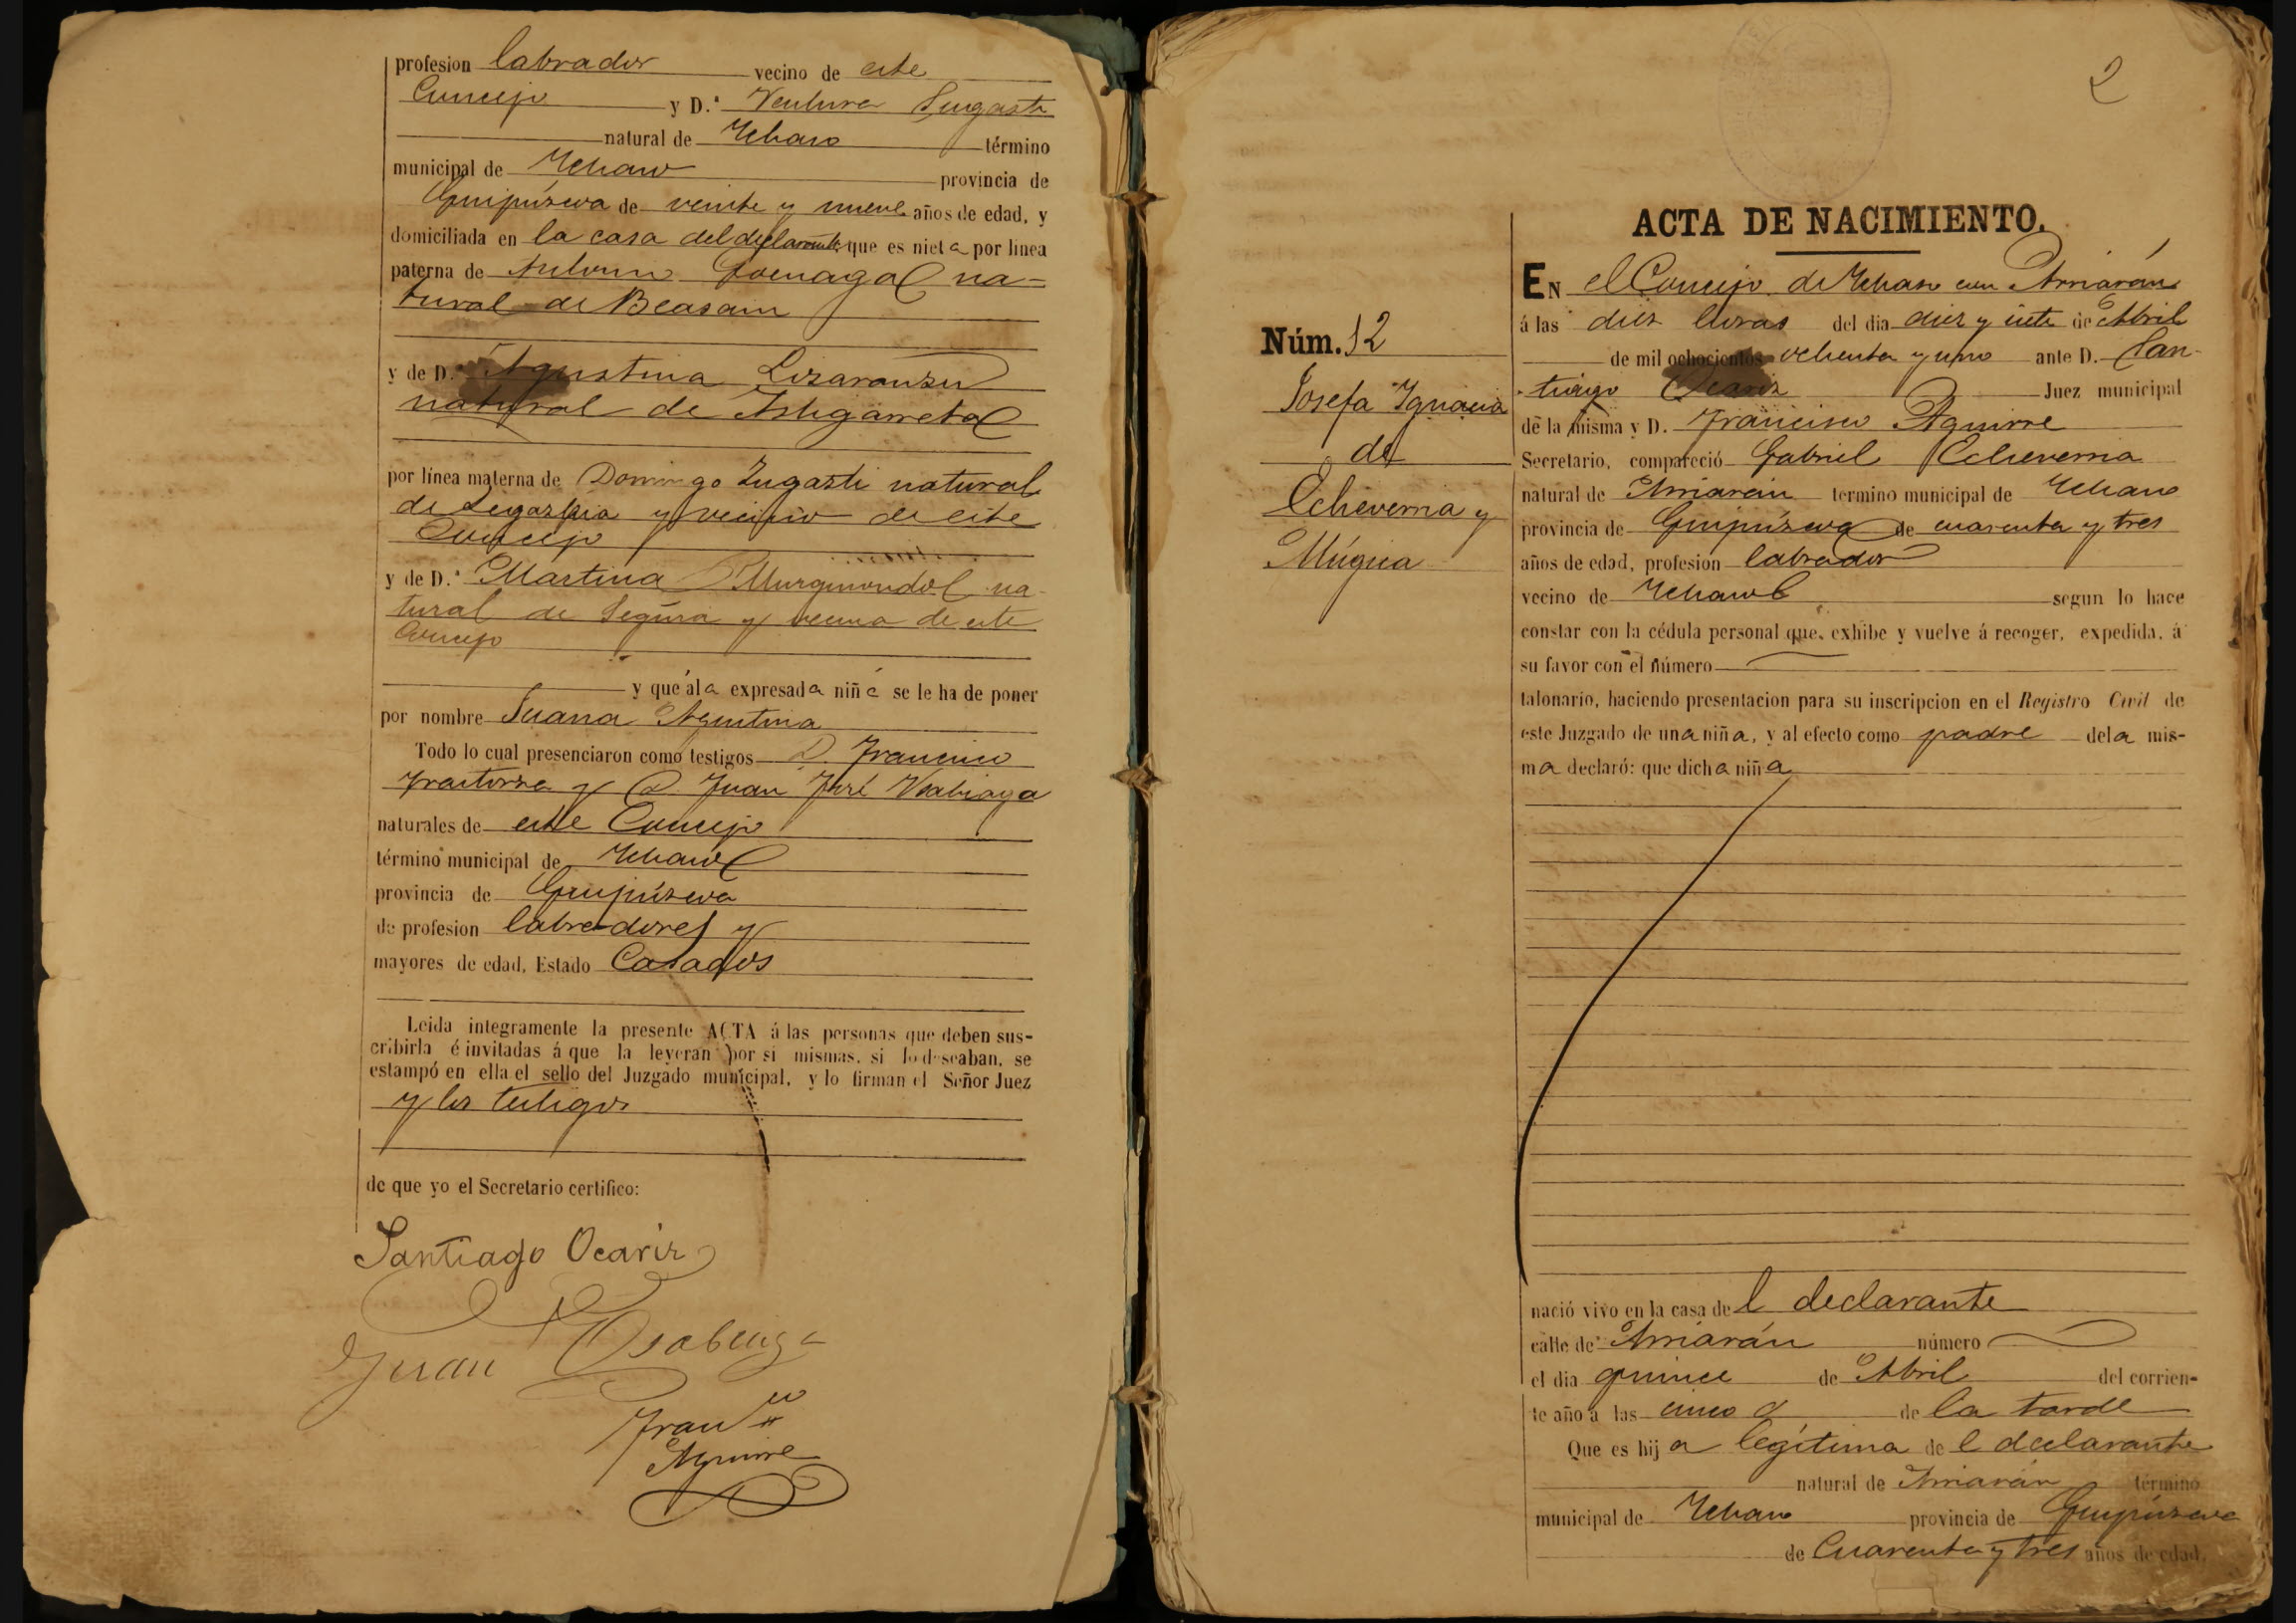 profesion labrador vecino de este
Concejo y D.ª Ventura Zugasti
natural de Ychaso término
municipal de Ychaso provincia de
Guipúzcoa de veinte y nueve años de edad, y
domiciliada en la casa del declarante que es nieta por línea
paterna de Antonio Goenaga na=
tural de Beasain
y de D.ª Agustina Lizaranzu
natural de Astigarreta
por línea materna de Domingo Zugasti natural
de Legazpia y vecino de este
Concejo
y de D.ª Martina Murguiondo na-
tural de Segura y vecina de este
Concejo
y que ála expresada niña se le ha de poner
por nombre Juana Agustina
Todo lo cual presenciaron como testigos D. Francisco
Yrastorza y D. Juan José Usabiaga
naturales de este Concejo
término municipal de Ychaso
provincia de Guipúzcoa
de profesion labradores y
mayores de edad, Estado Casados
Leida integramente la presente ACTA á las personas que deben sus-
cribirla é invitadas á que la leyeran por si mismas, si lo deseaban, se
estampó en ella el sello del Juzgado municipal, y lo firman el Señor Juez
y los testigos
de que yo el Secretario certifico:
Santiago Ocariz
Juan Usabiaga
Franco
Aguirre
2
ACTA DE NACIMIENTO.
EN el Concejo de Ychaso con Arriarán
á las diez horas del dia diez y siete de Abril
de mil ochocientos ochenta y uno ante D. San-
tiago Ocariz Juez municipal
de la misma y D. Francisco Aguirre
Secretario, compareció Gabriel Echeverria
natural de Arriarán termino municipal de Ychaso
provincia de Guipúzcoa de cuarenta y tres
años de edad, profesion labrador
vecino de Ychaso segun lo hace
constar con la cédula personal que exhibe y vuelve á recoger, expedida, á
su favor con el número
talonario, haciendo presentacion para su inscripcion en el Registro Civil de
este Juzgado de una niña, y al efecto como padre dela mis-
ma declaró: que dicha niña
Núm. 12
Josefa Ygnacia
de
Echeverria y
Múgica
nació vivo en la casa del declarante
calle de Arriarán número
el dia quince de Abril del corrien-
te año á las cinco de la tarde
Que es hija legítima de el declarante
natural de Arriarán término
municipal de Ychaso provincia de Guipúzcoa
de Cuarenta y tres años de edad,